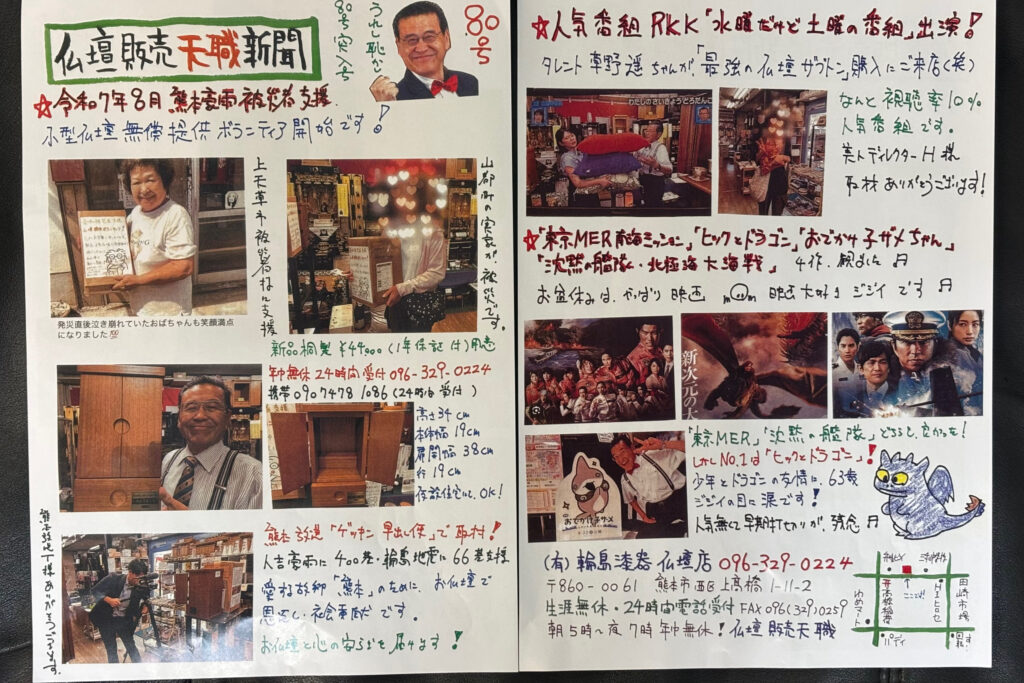 仏壇販売天職新聞
うれし恥かし
80号突入号
80号
☆令和7年8月熊本豪雨被災者支援
小型仏壇無償提供ボランティア開始です!
上天草市被災者様に支援
山都町の実家が、被災です。
発災直後泣き崩れていたおばちゃんも笑顔満点
になりました
新品桐製¥44,000(1年保証付)用意
年中無休24時間受付096-329-0224
携帯090 7478 1086(24時間受付)
高さ34cm
本体幅19cm
扉開幅38cm
行19cm
仮設住宅にもOK!
熊本放送「ゲツキン早出し便」で取材!
人吉豪雨に400基・輪島地震に66基支援
愛する故郷「熊本」のために、お仏壇で
恩返し・社会貢献です。
お仏壇と心の安らぎを届けます!
熊本放送 様ありがとうございます。
☆人気番組RKK「水曜だけど土曜の番組」出演!
タレント草野遥ちゃんが、「最強の仏壇ザブトン」購入にご来店(笑)
わたしのさいきょうとろだんこ
なんと視聴率10%
人気番組です。
美人ディレクターH様
取材ありがとうございます!
☆「東京MER南海ミッション」「ヒックとドラゴン」「おでかけ子ザメちゃん」
「沈黙の艦隊・北極海大海戦」4作、観ました♬
お盆休みは、やっぱり映画 映画大好きジジイです♬
新次元の大
おでかけ子ザメ
「東京MER」「沈黙の艦隊」どちらも、良かった!
しかしNo.1は「ヒックとドラゴン」!
少年とドラゴンの友情に、63歳
ジジイの目に涙です!
人気無くて早期打ちきりが、残念♬
(有)輪島漆器仏壇店 096-329-0224
〒860-0061 熊本市西区上高橋1-11-2
生涯無休・24時間電話受付 FAX 096(329)0259
朝5時〜夜7時年中無休!仏壇販売天職
ここ!
ゆめマート
井高橋稲荷
ヒロセ
田崎市場
パティ